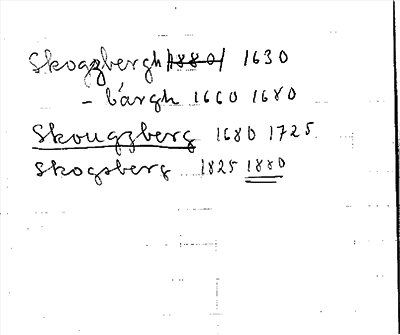 Skogzbergh /1880/ 1630
- bárgh 1660 1680
Skougzberg 1680 1725
Skogsberg 1825 1880